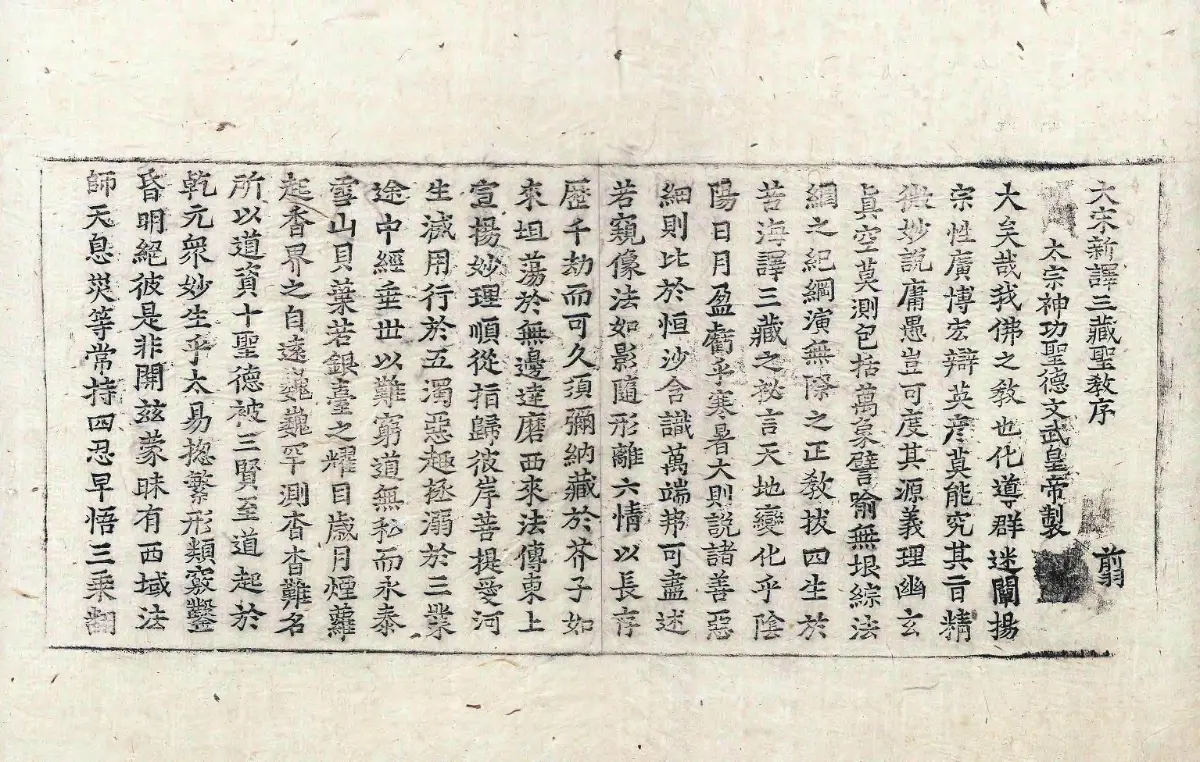 大宋新譯三藏聖教序
翦
太宗神功聖德文武皇帝製
大矣哉我佛之教也化導群迷闡揚
宗性廣博宏辯英彥莫能究其旨精
微妙說庸愚豈可度其源義理幽玄
眞空莫測包括萬象譬喻無垠綜法
綱之紀綱演無際之正教拔四生於
苦海譯三藏之祕言天地變化乎陰
陽日月盈虧乎寒暑大則說諸善惡
細則比於恒沙含識萬端弗可盡述
若窺像法如影隨形離六情以長存
歷千劫而可久須彌納藏於芥子如
來坦蕩於無邊達磨西來法傳東上
宣揚妙理順從指歸彼岸菩提愛河
生滅用行於五濁惡趣拯溺於三業
途中經垂世以難窮道無私而永泰
雪山貝葉若銀臺之耀目歲月煙蘿
起香界之自遠巍巍罕測杳杳難名
所以道資十聖德被三賢至道起於
乾元衆妙生乎太易揔繁形類竅鑿
昏明絕彼是非開兹蒙昧有西域法
師天息災等常持四忍早悟三乘翻